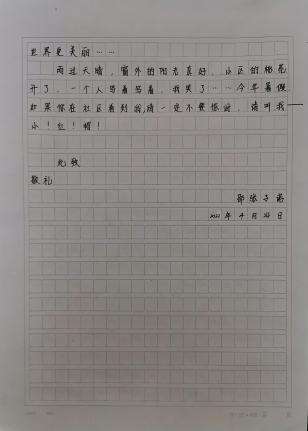 世界更美丽……
雨过天晴，窗外的阳光真好，小区的桃花
开了，一个人写着写着，我笑了……今年暑假
如果你在社区看到我，请一定不要惊讶，请叫我
小！红！帽！
此致
敬礼
年4月24日